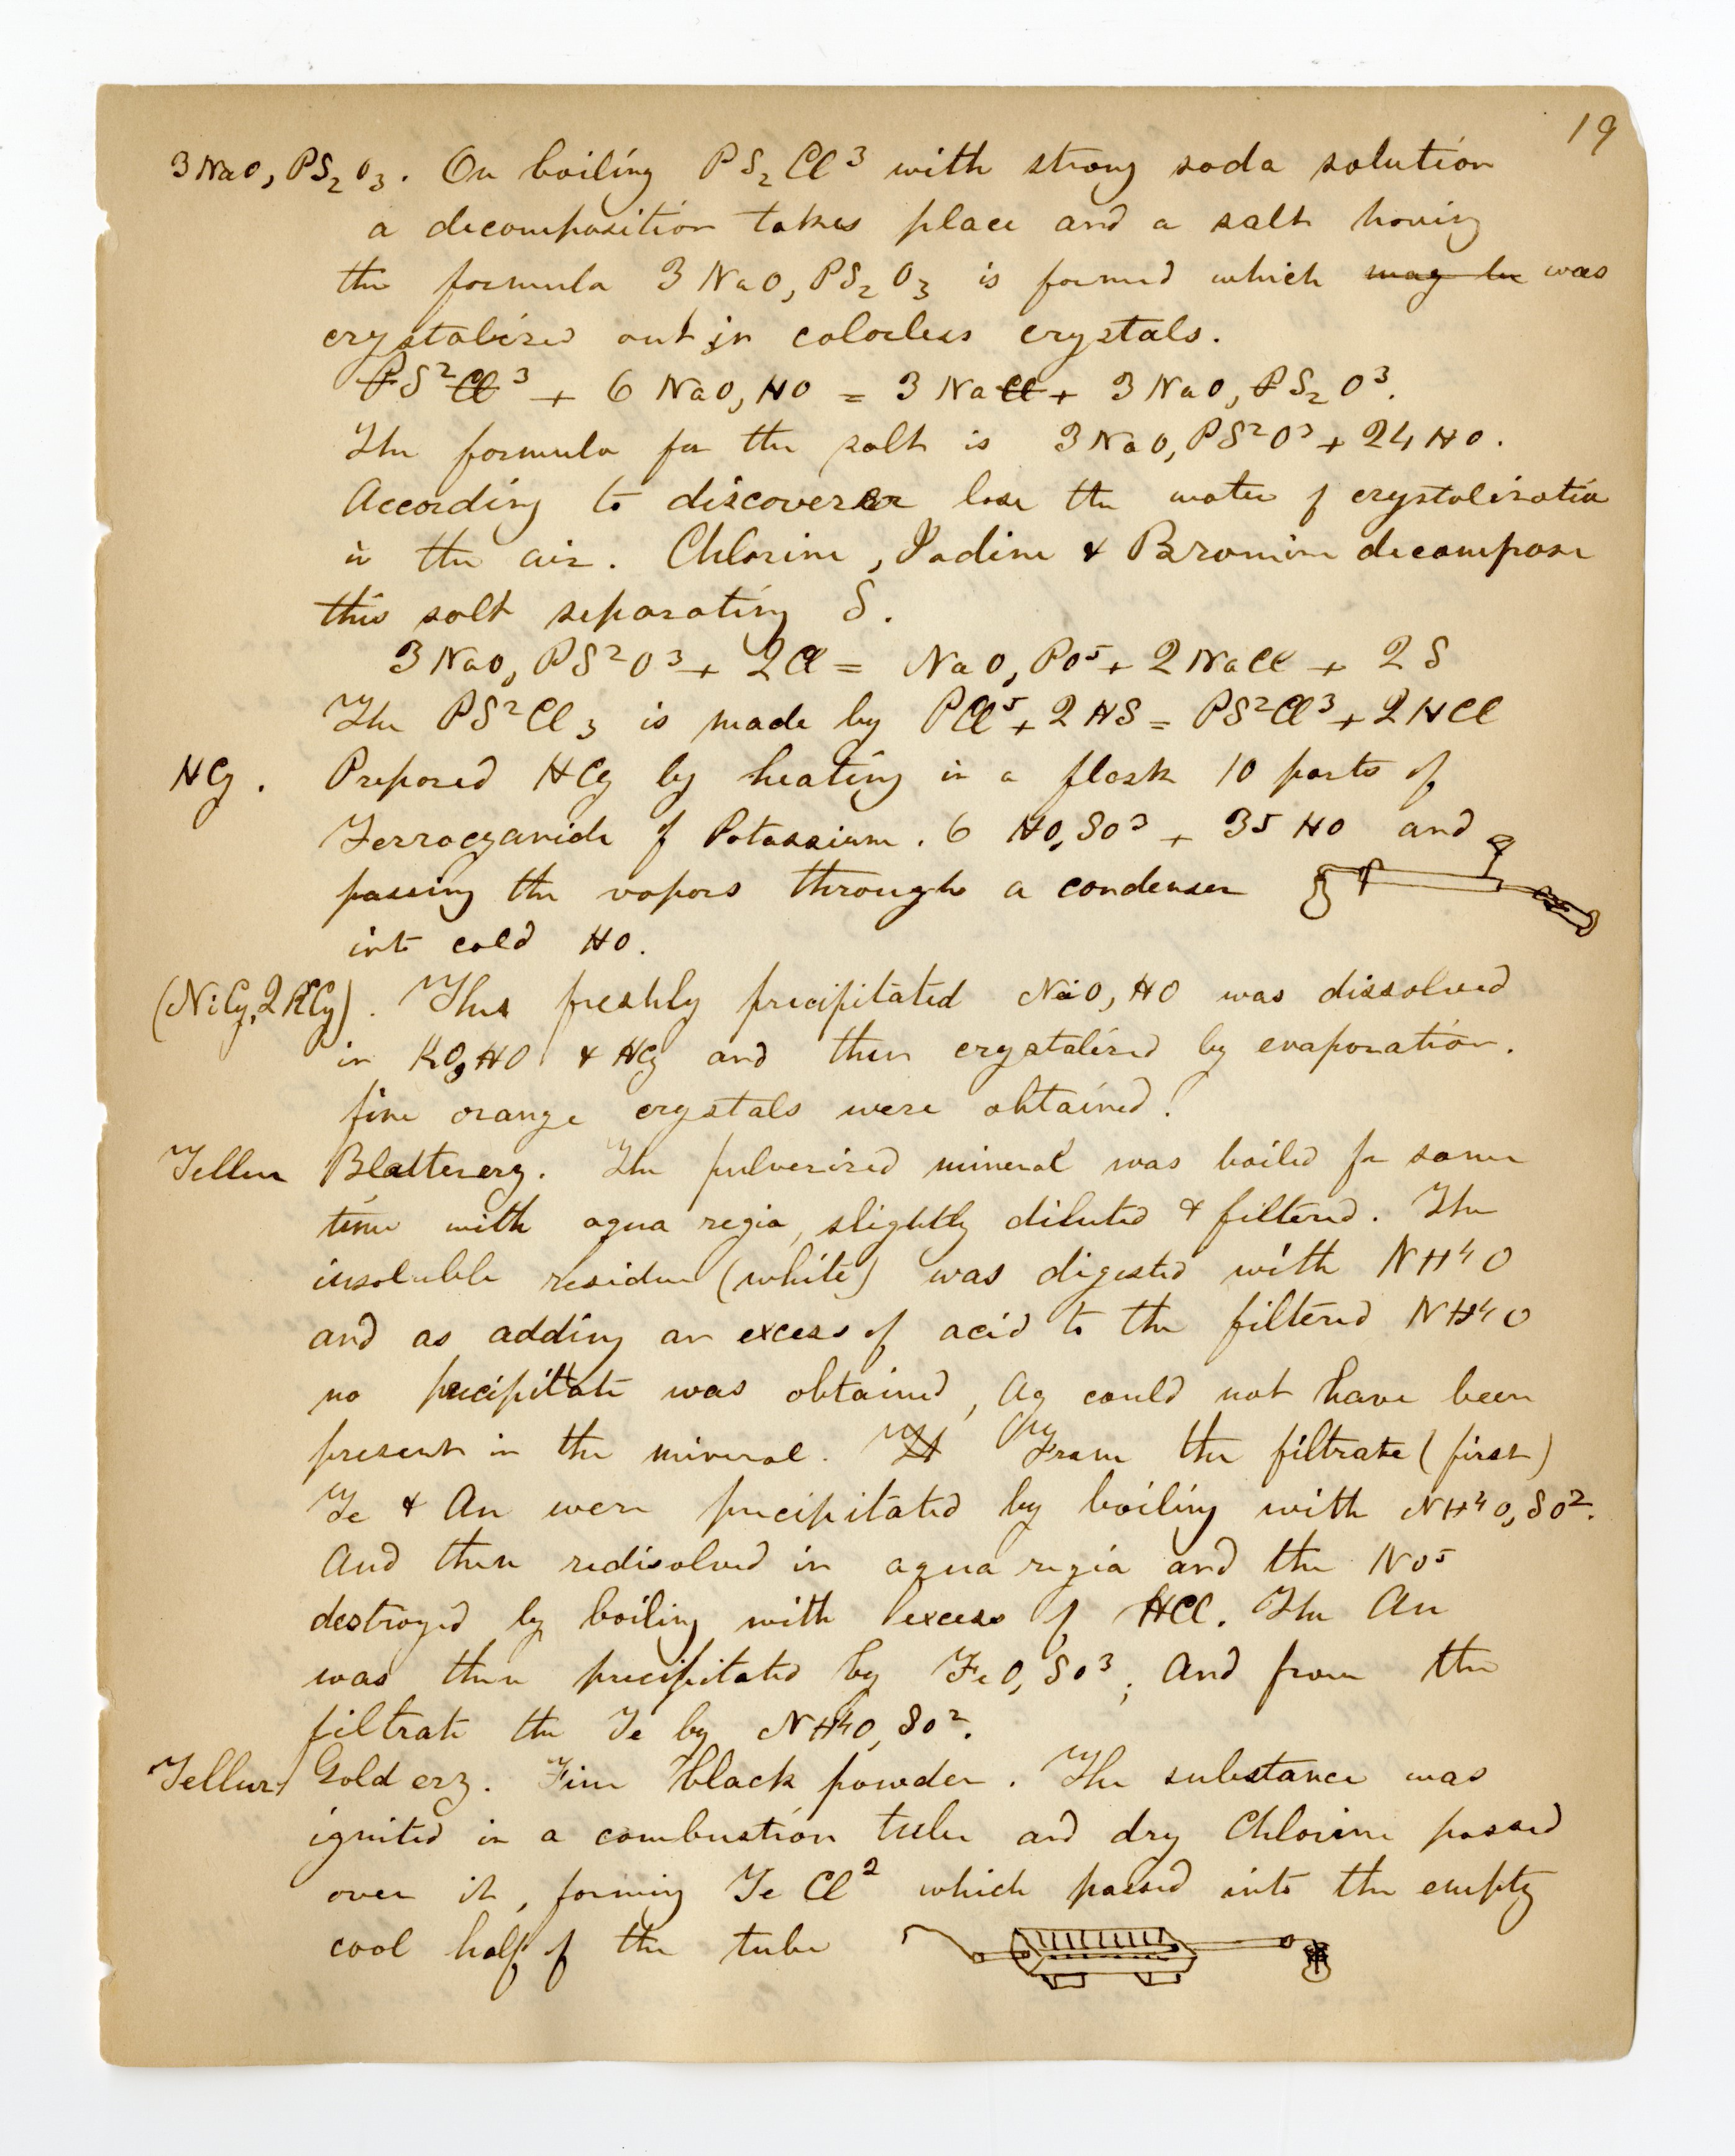 19
3NaO, PS₂O₃. On boiling PS₂Cl³ with strong soda solution
a decomposition takes place and a salt having
the formula 3 NaO, PS₂O₃ is formed which ~~may be~~ was
crystalized out in colorless crystals.
PS²Cl³ + 6 NaO, HO = 3 NaCl + 3 NaO, PS₂O³.
The formula for the salt is 3NaO, PS²O³ + 24 HO.
According to discoverer lose the water of crystalization
in the air. Chlorine, Iodine & Bromine decompose
this salt separating S.
3NaO, PS²O³ + 2Cl = NaO, PO⁵ + 2NaCl + 2S
The PS²Cl₃ is made by PCl⁵ + 2HS = PS²Cl³ + 2HCl
HCy. Prepared HCy by heating in a flask 10 parts of
Ferrocyanide of Potassium. 6 HO, SO³ + 35 HO and
passing the vapors through a condenser
into cold HO.
(NiCy, 2KCy). Thus freshly precipitated NiO, HO was dissolved
in KO, HO & HCy and then crystalized by evaporation.
fine orange crystals were obtained!
Tellur Blattererz. The pulverized mineral was boiled for some
time with aqua regia, slightly diluted & filtered. The
insoluble residue (white) was digested with NH⁴O
and as adding an excess of acid to the filtered NH⁴O
no precipitate was obtained, Ag could not have been
present in the mineral. From the filtrate (first)
Te & Au were precipitated by boiling with NH⁴O, SO².
And then redisolved in aqua regia and the NO⁵
destroyed by boiling with excess of HCl. The Au
was then precipitated by FeO, SO³; and from the
filtrate the Te by NH⁴O, SO².
Tellur Gold erz. Fine black powder. The substance was
ignited in a combustion tube and dry Chlorine passed
over it, forming Te Cl² which passed into the empty
cool half of the tube